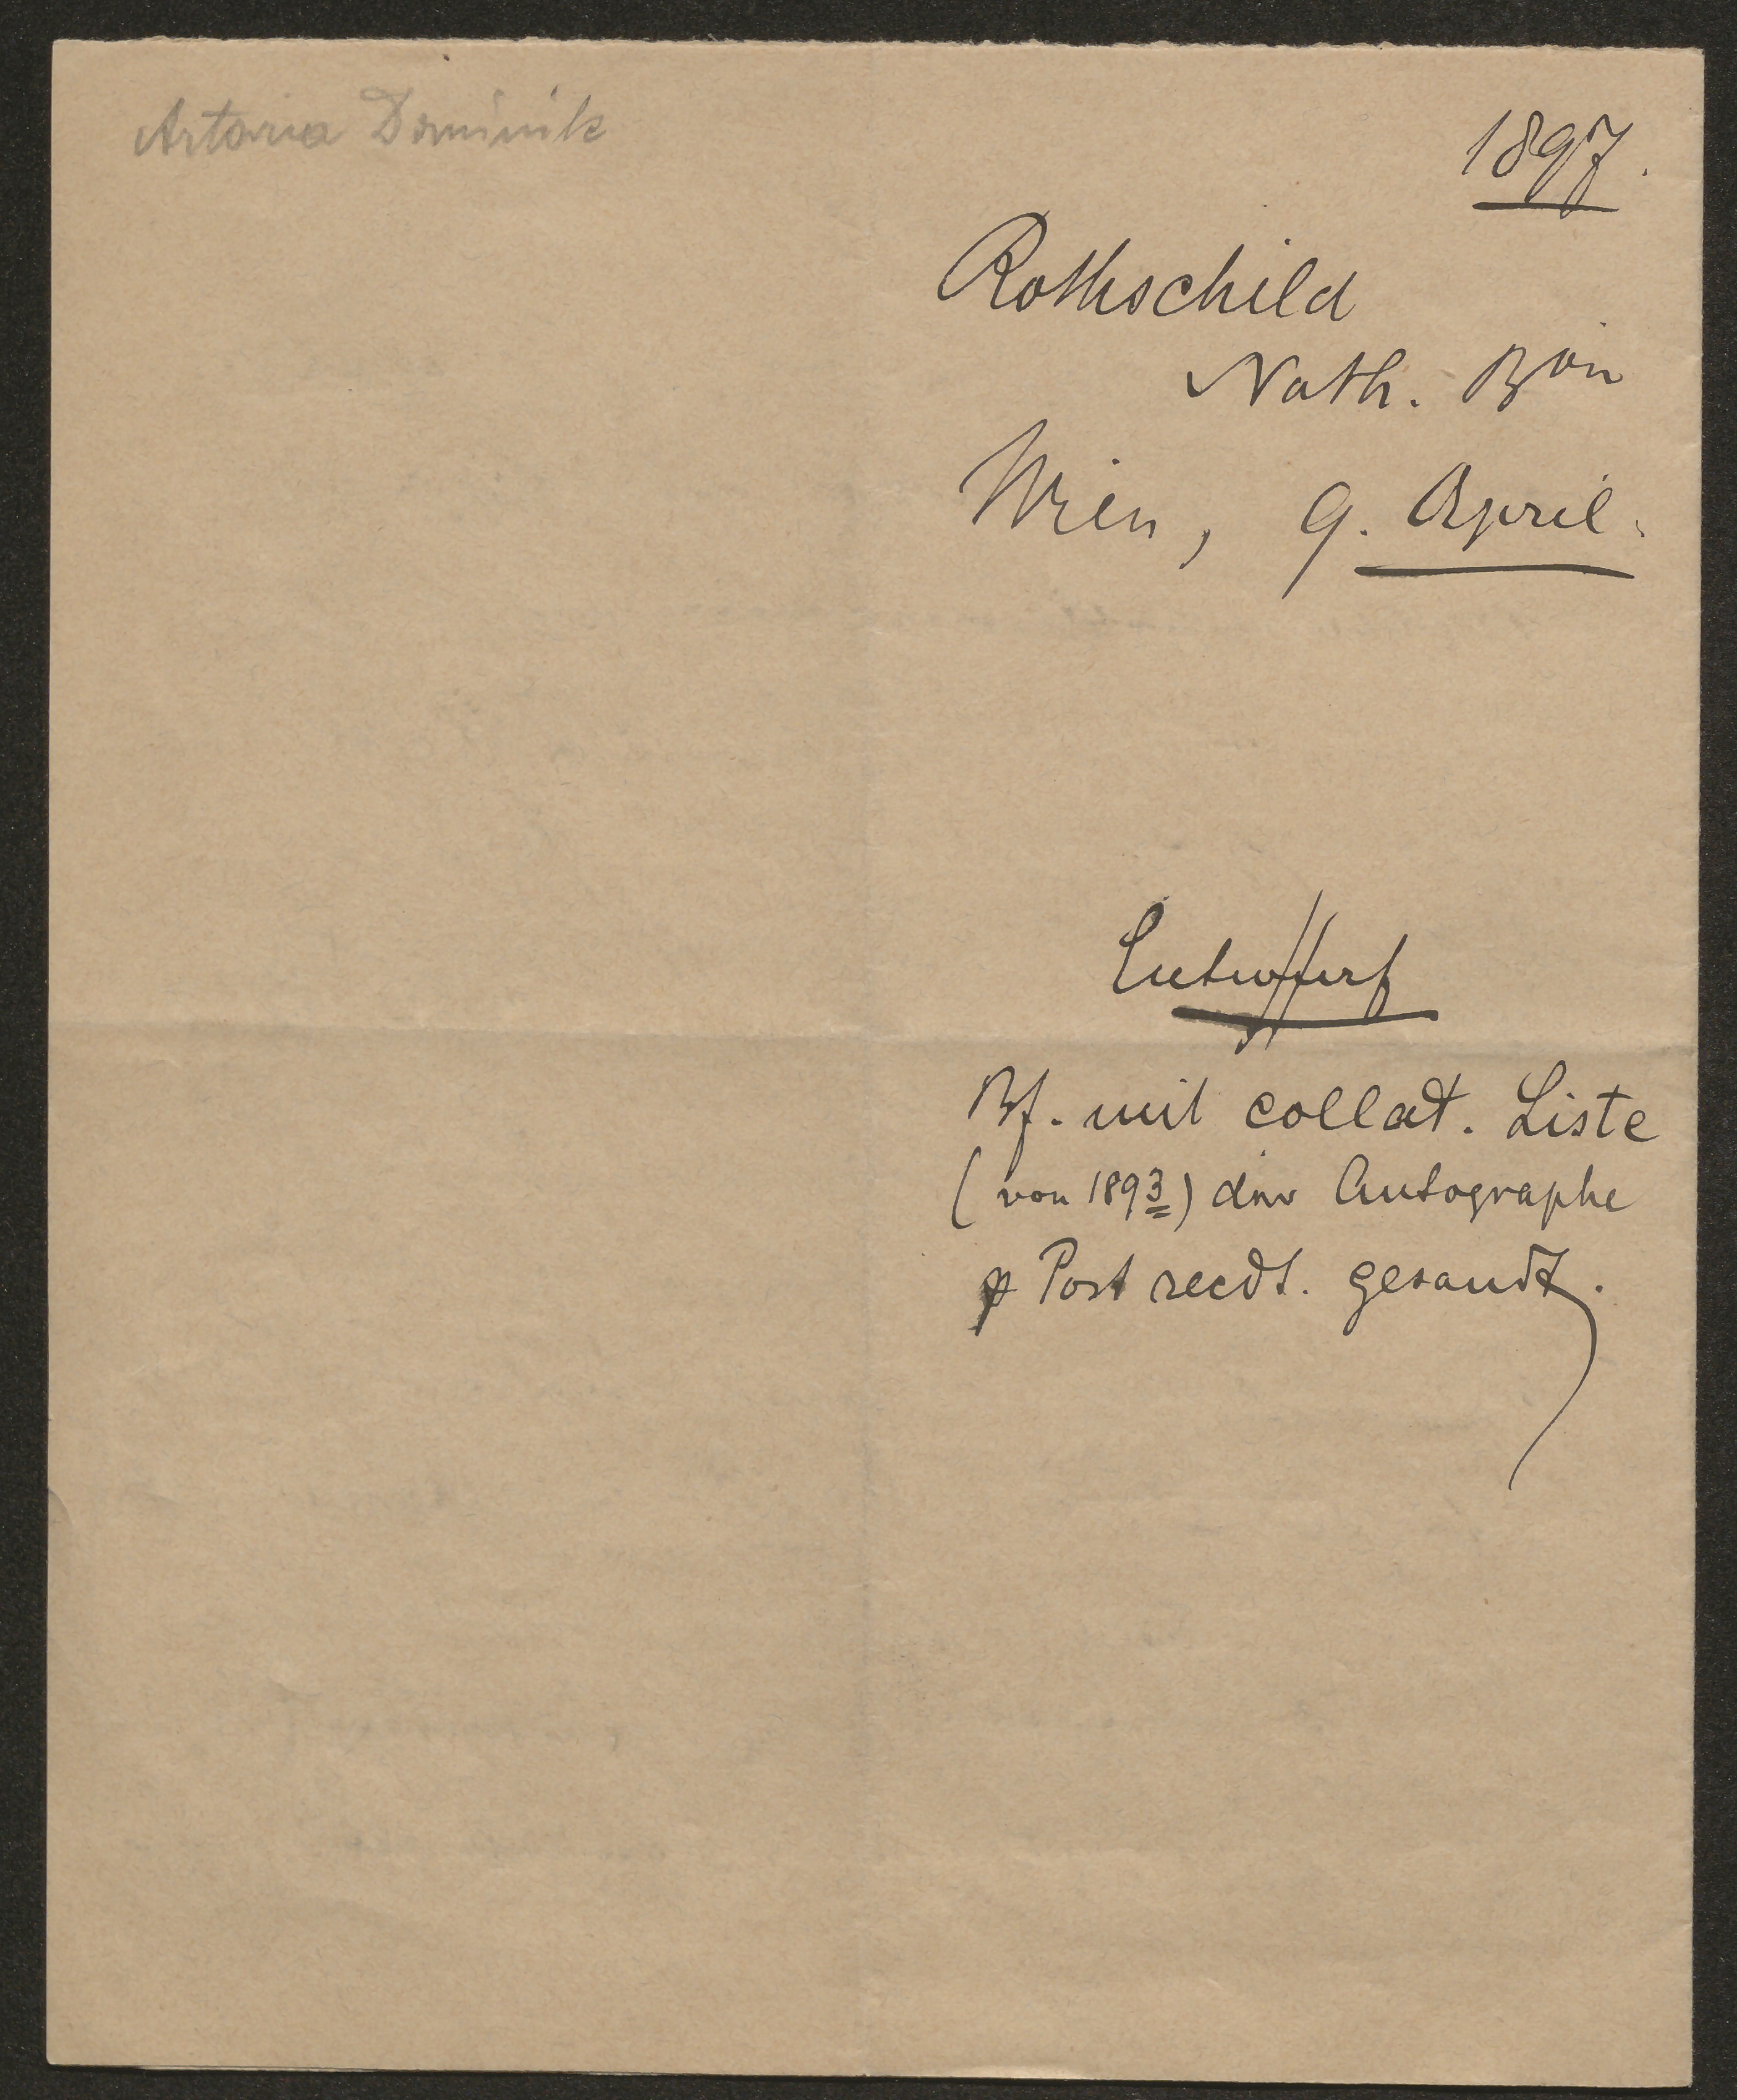 Artaria Dominik
1897.
Rothschild
Nath. Bon
Wien, 9. April.
Entwurf
Bf. mit collat. Liste
(von 1893) der Autographe
p Post recdt. gesandt.